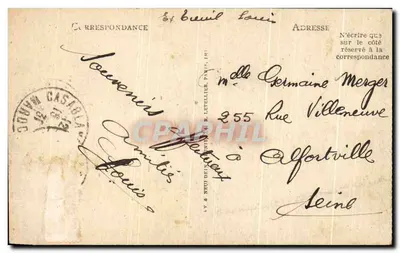 CORRESPONDANCE
Ex Tueuil Louis
ADRESSE
N'écrire que
sur le côté
réservé à la
correspondance
Souvenirs affectueux
Amitiés
Louis
Mlle Germaine Merger
255 Rue Villeneuve
à
Alfortville
Seine
CASABLA
MAROC
CPArama.com
LETELLIER, PARIS